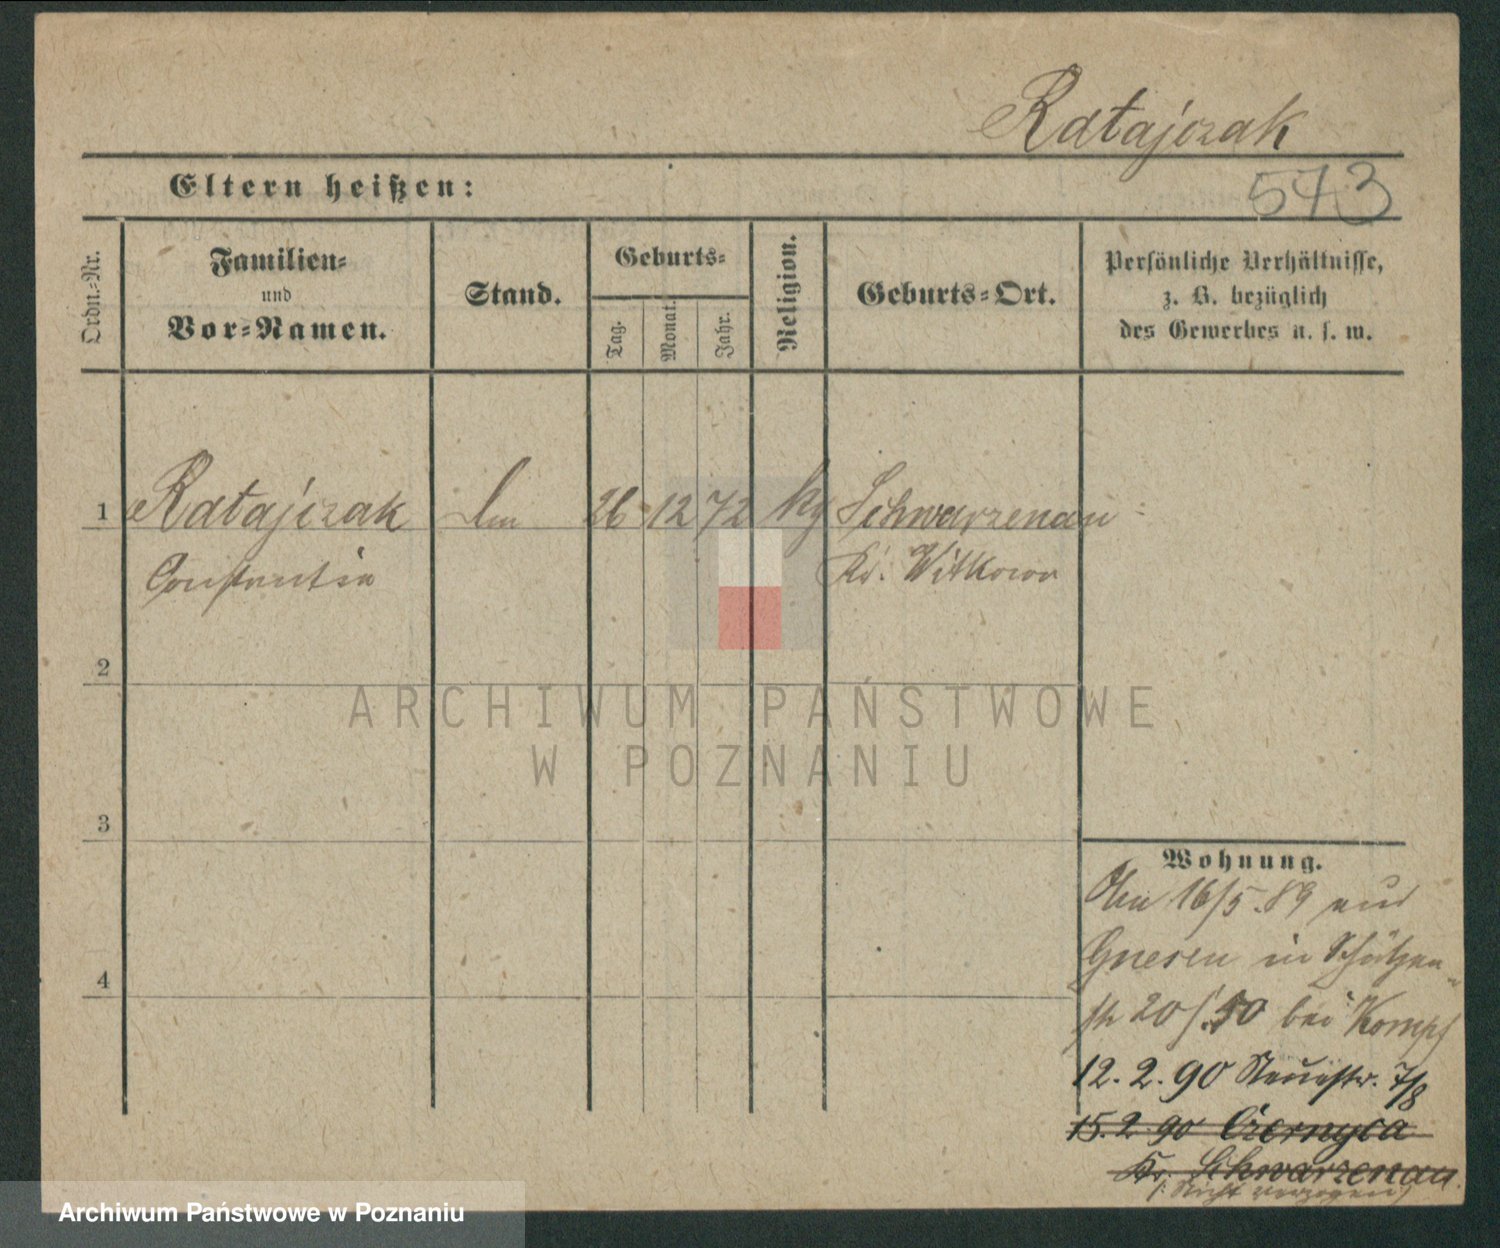 Ratajczak
Eltern heißen:
573
Ordn.-Nr.
Familien-
und
Vor-Namen.
Stand.
Geburts-
Tag.
Monat.
Jahr.
Religion.
Geburts-Ort.
Persönliche Verhältnisse,
z. B. bezüglich
des Gewerbes u. s. w.
1 Ratajczak 26 12 72 Schwarzenau
Constantia Kr. Witkowo
2
ARCHIWUM PAŃSTWOWE
W POZNANIU
3
4
Wohnung.
16/5.89 aus
Gnesen in Schützen-
str 20 bei Kempf
12.2.90 Neuestr. 7/8
15.2.90 Czernyca
Kr. Schwarzenau
(: Nicht verzogen)
Archiwum Państwowe w Poznaniu